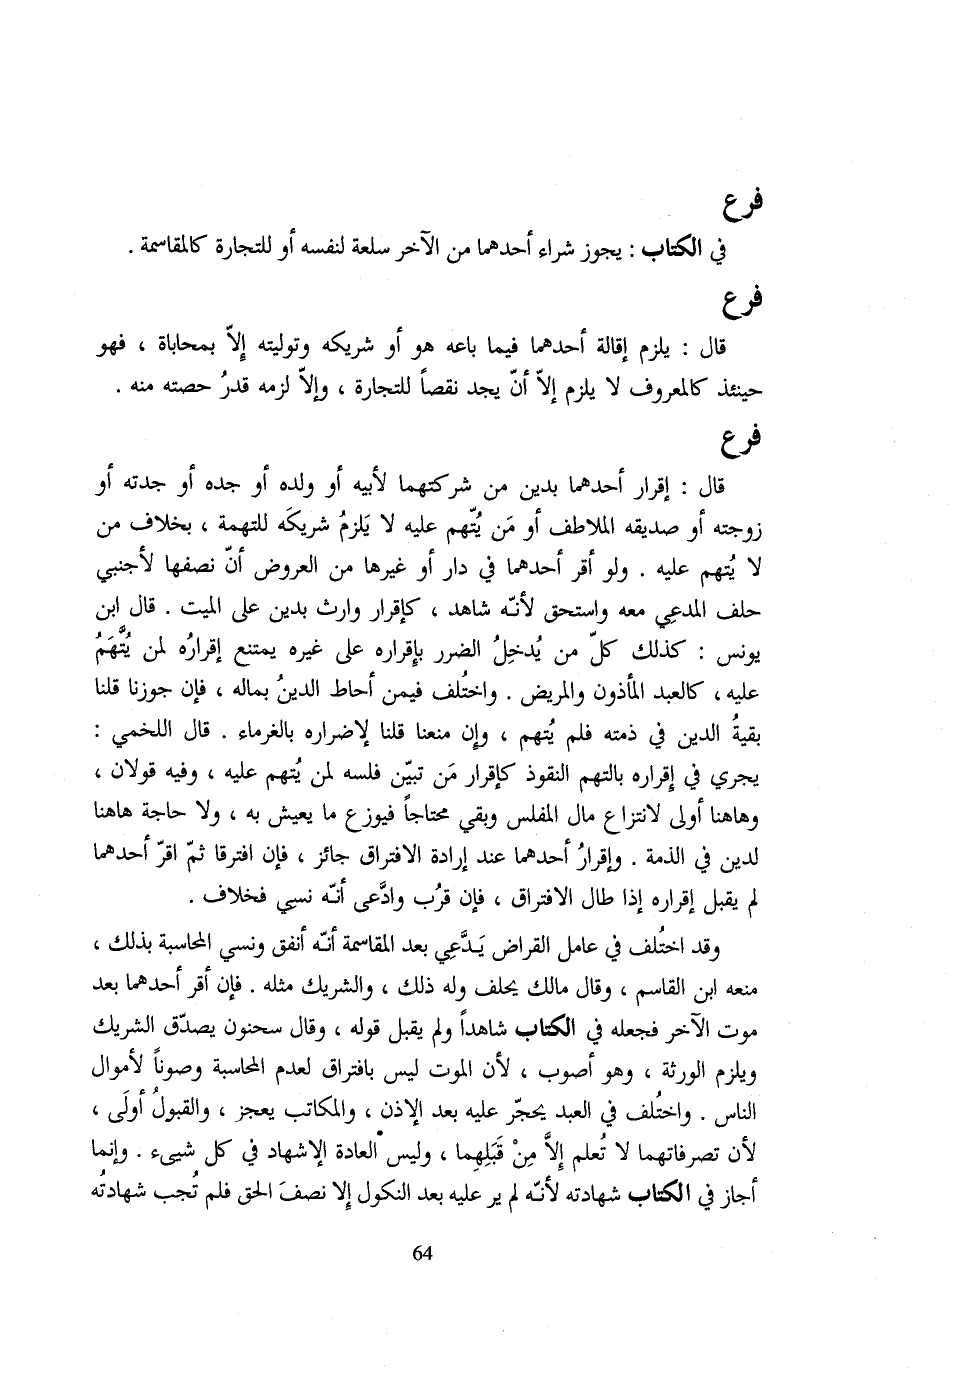 فرع
في الكتاب : يجوز شراء أحدهما من الآخر سلعة لنفسه أو للتجارة كالمقاسمة .
فرع
قال : يلزم إقالة أحدهما فيما باعه هو أو شريكه وتوليته إلاّ بمحاباة ، فهو
حينئذ كالمعروف لا يلزم إلاّ أنّ يجد نقصاً للتجارة ، وإلاّ لزمه قدرُ حصته منه .
فرع
قال : إقرار أحدهما بدين من شركتهما لأبيه أو ولده أو جده أو جدته أو
زوجته أو صديقه الملاطف أو مَن يُتّهم عليه لا يَلزمُ شريكَه للتهمة ، بخلاف من
لا يُتهم عليه . ولو أقر أحدهما في دار أو غيرها من العروض أنّ نصفها لأجنبي
حلف المدعِي معه واستحق لأنّه شاهد ، كإقرار وارث بدين على الميت . قال ابن
يونس : كذلك كلّ من يُدخِلُ الضرر بإقراره على غيره يمتنع إقرارُه لمن يُتَّهَمُ
عليه ، كالعبد المأذون والمريض . واختُلف فيمن أحاط الدينُ بماله ، فإن جوزنا قلنا
بقيةُ الدين في ذمته فلم يُتهم ، وإن منعنا قلنا لإضراره بالغرماء . قال اللخمي :
يجري في إقراره بالتهم النقوذ كإقرار مَن تبيّن فلسه لمن يُتهم عليه ، وفيه قولان ،
وهاهنا أولى لانتزاع مال المفلس وبقي محتاجاً فيوزع ما يعيش به ، ولا حاجة هاهنا
لدين في الذمة . وإقرارُ أحدهما عند إرادة الافتراق جائز ، فإن افترقا ثمّ اقرّ أحدهما
لم يقبل إقراره إذا طال الافتراق ، فإن قرُب وادَّعى أنّه نسي فخلاف .
وقد اختُلف في عامل القراض يَدَّعِي بعد المقاسمة أنّه أنفق ونسي المحاسبة بذلك ،
منعه ابن القاسم ، وقال مالك يحلف وله ذلك ، والشريك مثله . فإن أقر أحدهما بعد
موت الآخر فجعله في الكتاب شاهداً ولم يقبل قوله ، وقال سحنون يصدّق الشريك
ويلزم الورثة ، وهو أصوب ، لأن الموت ليس بافتراق لعدم المحاسبة وصوناً لأموال
الناس . واختُلف في العبد يحجّر عليه بعد الإذن ، والمكاتب يعجز ، والقبولُ أولَى ،
لأن تصرفاتهما لا تُعلم إلاَّ مِنْ قَبَلِهِما ، وليس العادة الإشهاد في كل شيىء . وإنما
أجاز في الكتاب شهادته لأنّه لم ير عليه بعد النكول إلا نصفَ الحق فلم تُجب شهادتُه
64